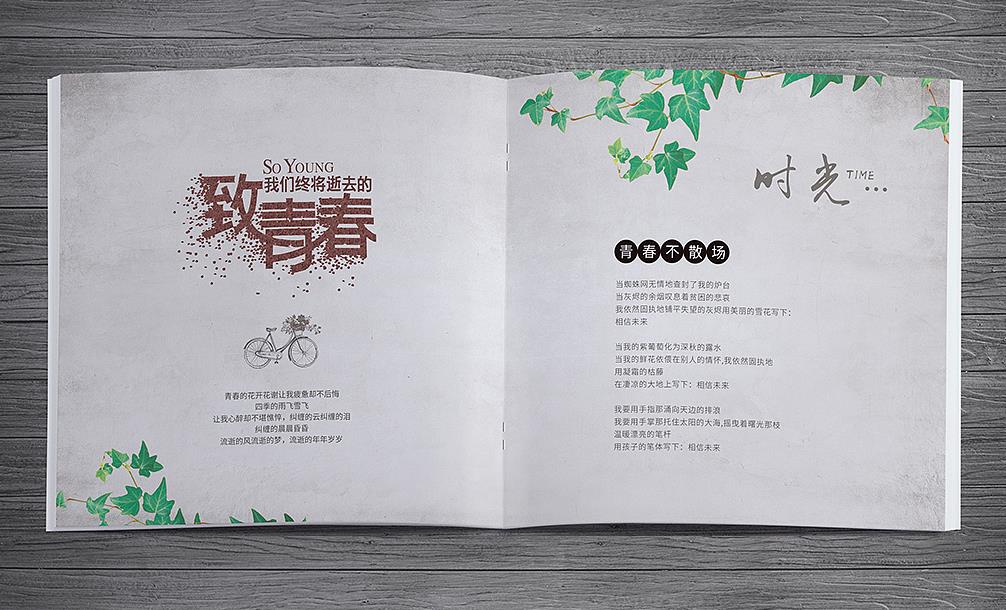 SO YOUNG
我们终将逝去的
致青春
青春的花开花谢让我疲惫却不后悔
四季的雨飞雪飞
让我心醉却不堪憔悴，纠缠的云纠缠的泪
纠缠的晨晨昏昏
流逝的风流逝的梦，流逝的年年岁岁
时光 TIME...
青春不散场
当蜘蛛网无情地查封了我的炉台
当灰烬的余烟叹息着贫困的悲哀
我依然固执地铺平失望的灰烬用美丽的雪花写下：
相信未来
当我的紫葡萄化为深秋的露水
当我的鲜花依偎在别人的情怀,我依然固执地
用凝霜的枯藤
在凄凉的大地上写下：相信未来
我要用手指那涌向天边的排浪
我要用手掌那托住太阳的大海,摇曳着曙光那枝
温暖漂亮的笔杆
用孩子的笔体写下：相信未来